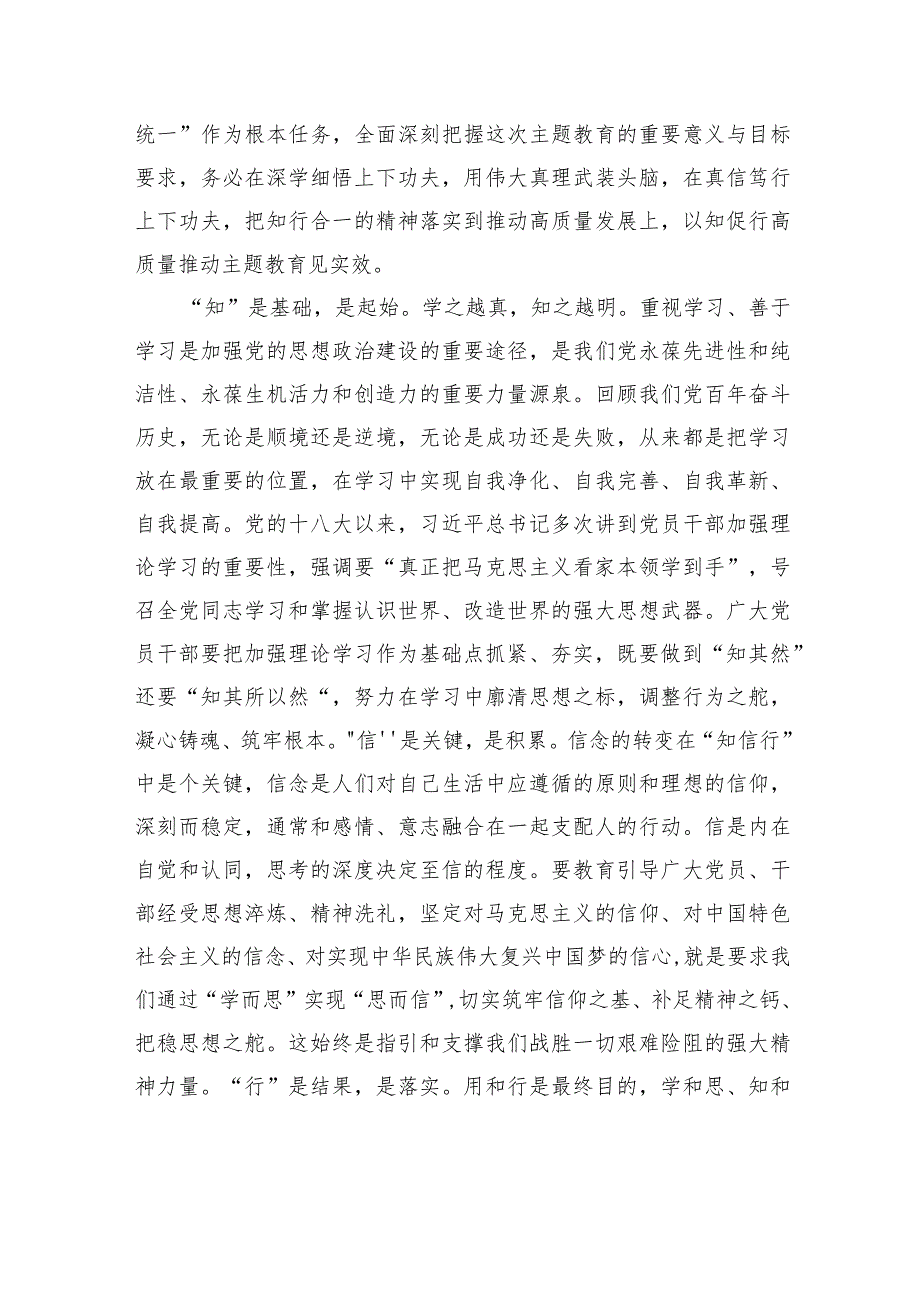 统一”作为根本任务，全面深刻把握这次主题教育的重要意义与目标
要求，务必在深学细悟上下功夫，用伟大真理武装头脑，在真信笃行
上下功夫，把知行合一的精神落实到推动高质量发展上，以知促行高
质量推动主题教育见实效。
“知”是基础，是起始。学之越真，知之越明。重视学习、善于
学习是加强党的思想政治建设的重要途径，是我们党永葆先进性和纯
洁性、永葆生机活力和创造力的重要力量源泉。回顾我们党百年奋斗
历史，无论是顺境还是逆境，无论是成功还是失败，从来都是把学习
放在最重要的位置，在学习中实现自我净化、自我完善、自我革新、
自我提高。党的十八大以来，习近平总书记多次讲到党员干部加强理
论学习的重要性，强调要“真正把马克思主义看家本领学到手”，号
召全党同志学习和掌握认识世界、改造世界的强大思想武器。广大党
员干部要把加强理论学习作为基础点抓紧、夯实，既要做到“知其然”
还要“知其所以然“，努力在学习中廓清思想之标，调整行为之舵，
凝心铸魂、筑牢根本。"信''是关键，是积累。信念的转变在“知信行”
中是个关键，信念是人们对自己生活中应遵循的原则和理想的信仰，
深刻而稳定，通常和感情、意志融合在一起支配人的行动。信是内在
自觉和认同，思考的深度决定至信的程度。要教育引导广大党员、干
部经受思想淬炼、精神洗礼，坚定对马克思主义的信仰、对中国特色
社会主义的信念、对实现中华民族伟大复兴中国梦的信心,就是要求我
们通过“学而思”实现“思而信”,切实筑牢信仰之基、补足精神之钙、
把稳思想之舵。这始终是指引和支撑我们战胜一切艰难险阻的强大精
神力量。“行”是结果，是落实。用和行是最终目的，学和思、知和